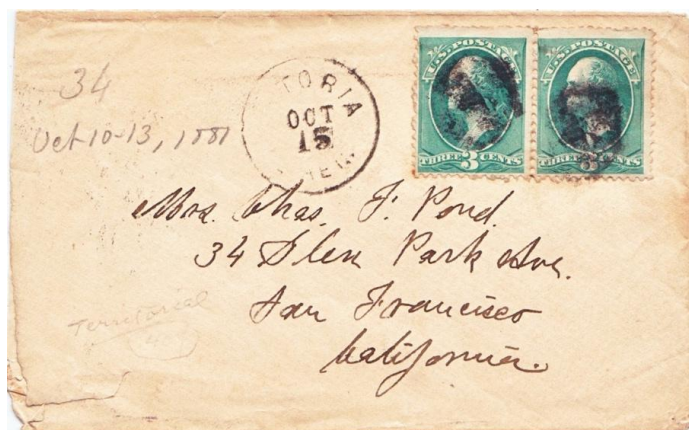 34
Oct-10-13, 1881
TORIA
OCT
15
U.S. POSTAGE
THREE 3 CENTS
U.S. POSTAGE
THREE 3 CENTS
Mrs. Chas. F. Pond.
34 Glen Park Ave.
San Francisco
California.
Territorial
4